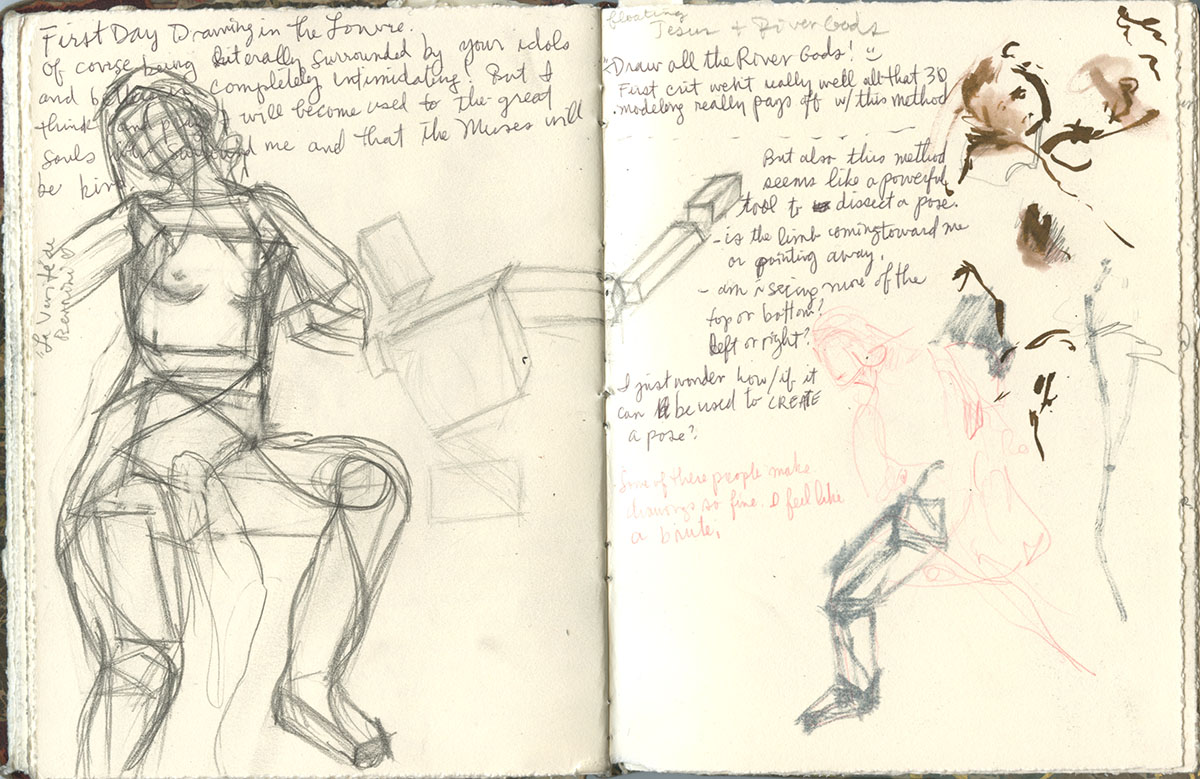 First Day Drawing in the Louvre.
Of corse being literally surrounded by your idols
and betters is completely intimidating. But I
think and pray I will become used to the great
souls surround me and that the Muses will
be kind.
La Verité de
Bernini
floating
Jesus + River Gods
Draw all the River Gods! :)
First crit wen't really well all that 3D
modeling really pays off w/ this method
But also this method
seems like a powerful
tool to dissect a pose.
- is the limb coming toward me
or pointing away.
- am i seeing more of the
top or bottom?
left or right?
I just wonder how/if it
can be used to CREATE
a pose?
Some of these people make
drawings so fine. I feel like
a brute.